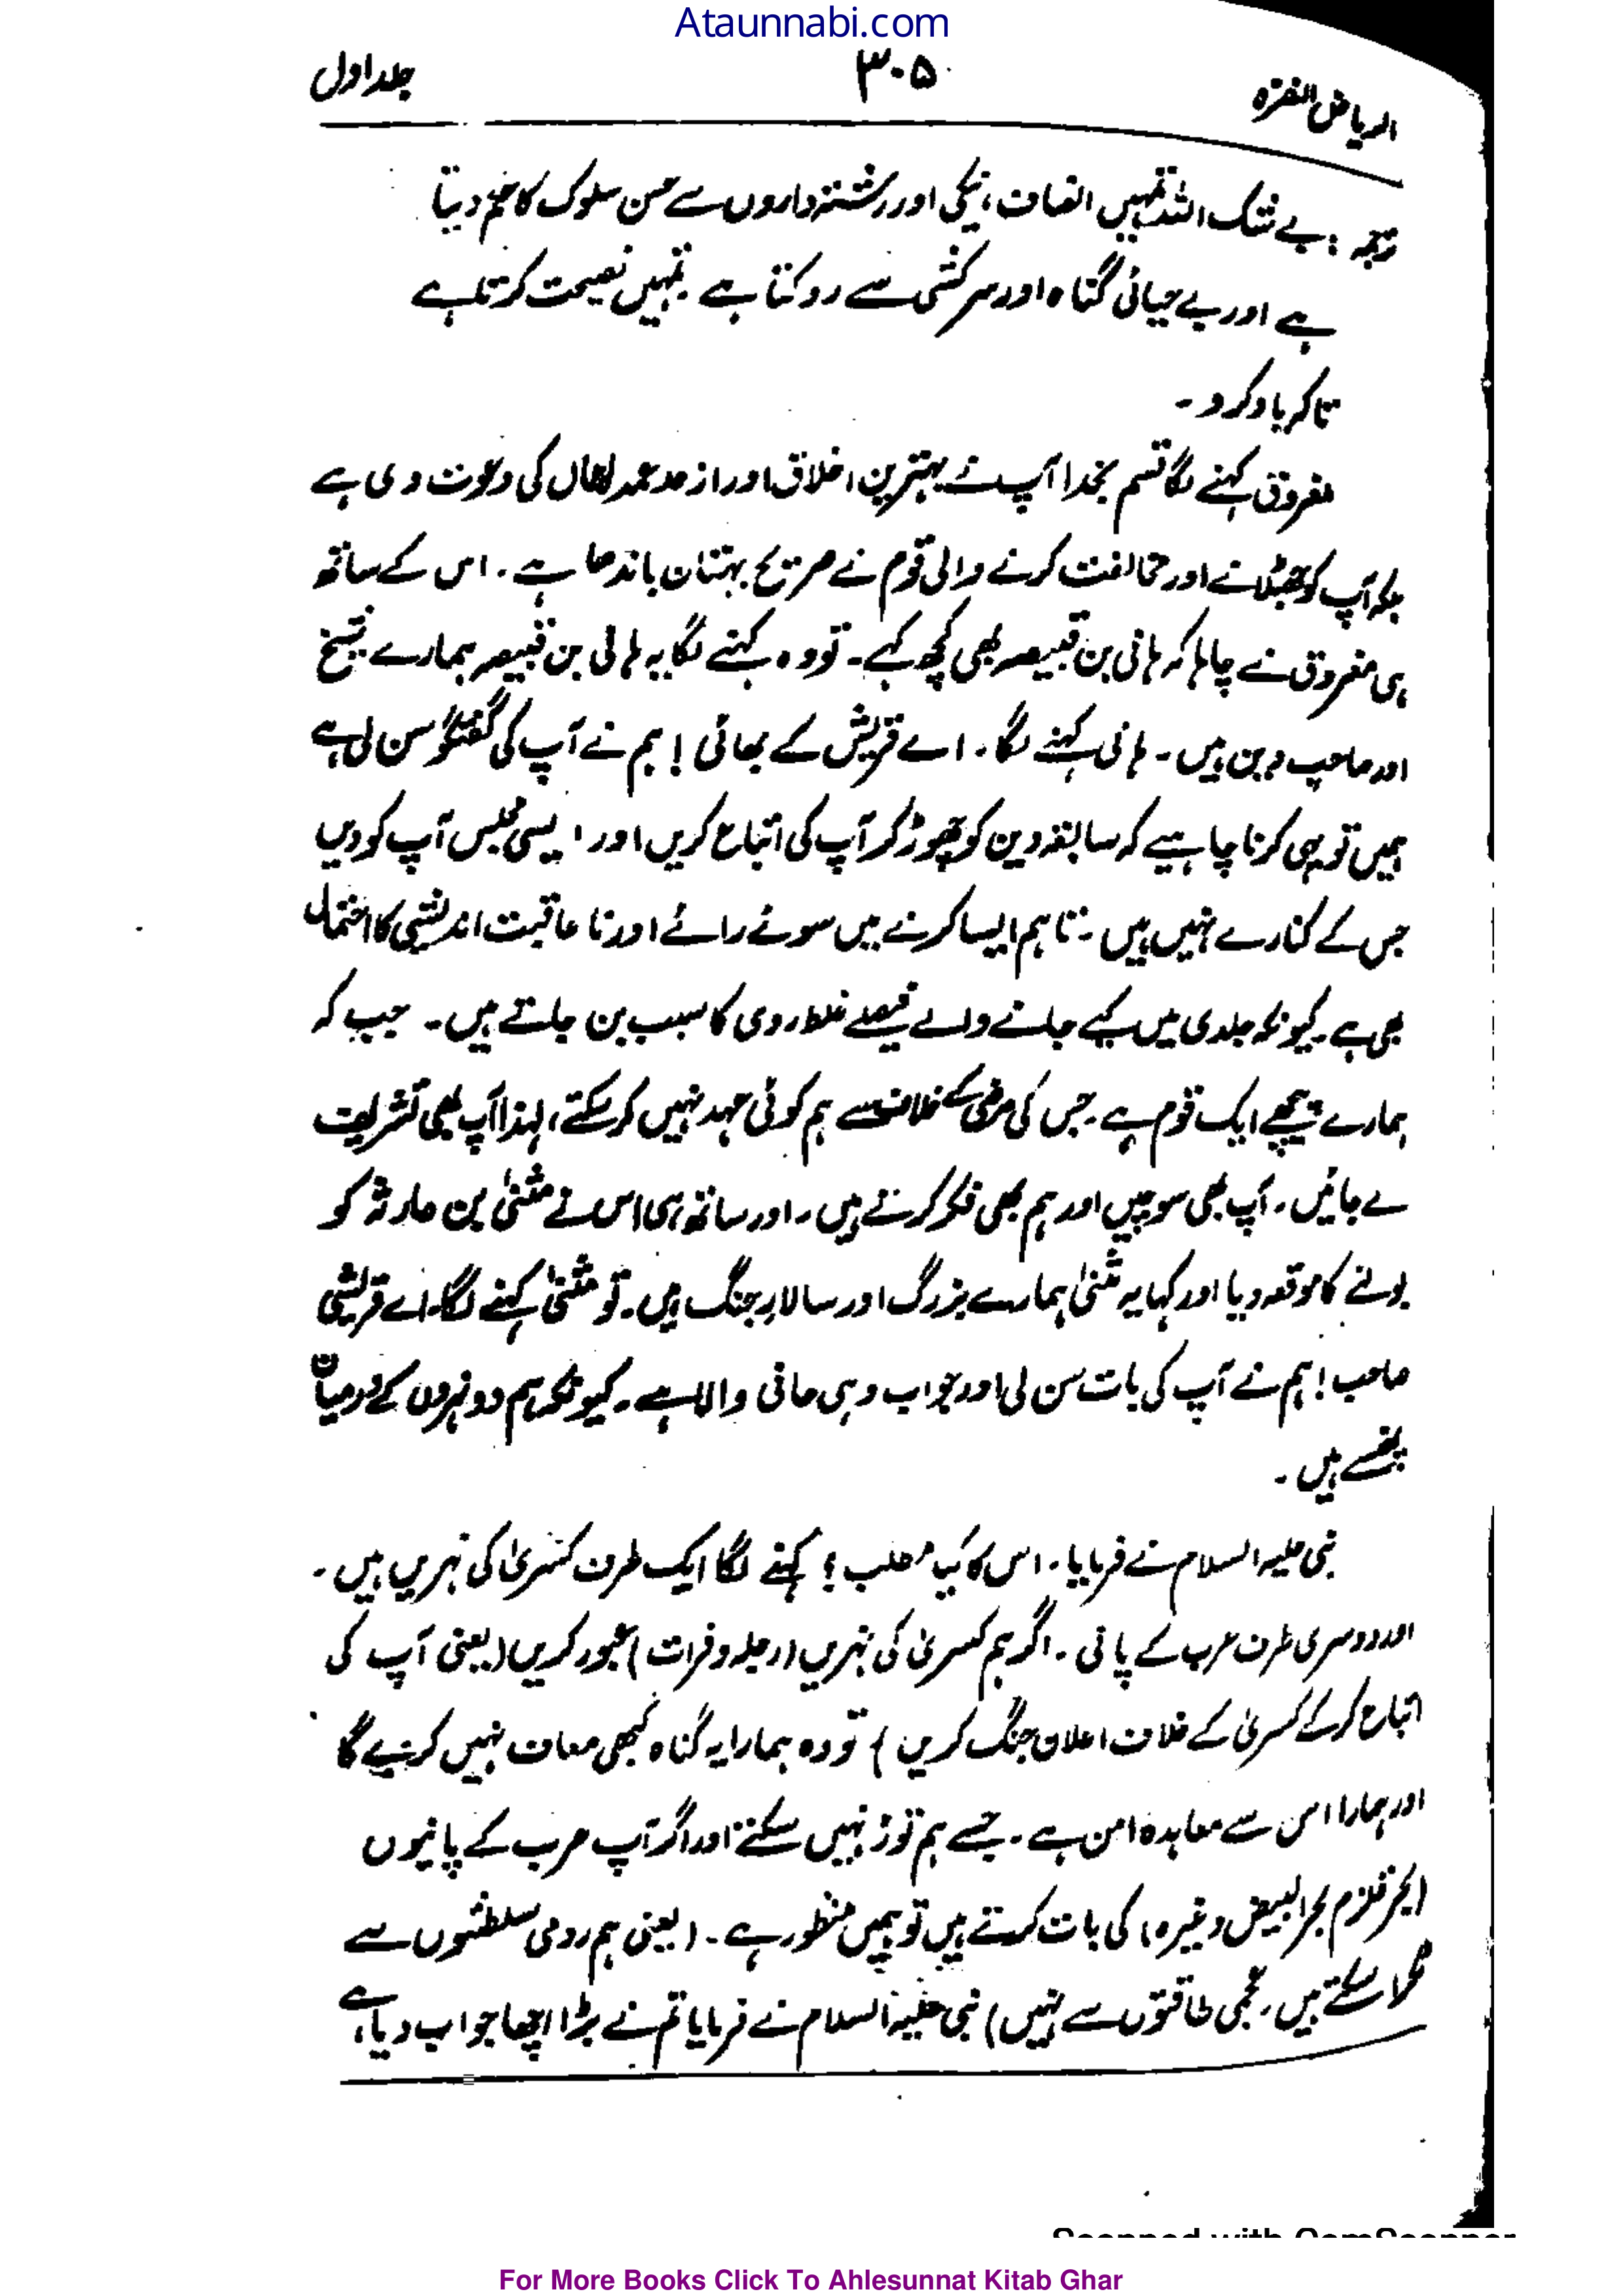 Ataunnabi.com
الریاض النضرہ ۳۰۵ جلد اول
ترجمہ: بے شک اللہ تمہیں انصاف، نیکی اور رشتہ داروں سے حسن سلوک کا حکم دیتا
ہے اور بے حیائی گناہ اور سرکشی سے روکتا ہے تمہیں نصیحت کرتا ہے
تاکہ یاد کرو۔
مفروق کہنے لگا قسم بخدا آپ نے بہترین اخلاق اور از حد عمدہ افعال کی دعوت دی ہے
بلکہ آپ کو جھٹلانے اور مخالفت کرنے والی قوم نے صریح بہتان باندھا ہے۔ اس کے ساتھ
ہی مفروق نے چاہا کہ ہانی بن قبیصہ بھی کچھ کہے۔ تو وہ کہنے لگا یہ ہانی بن قبیصہ ہمارے شیخ
اور صاحب دین ہیں۔ ہانی کہنے لگا۔ اے قریش کے بھائی! ہم نے آپ کی گفتگو سن لی ہے
ہمیں تو یہی کرنا چاہیے کہ سابقہ دین کو چھوڑ کر آپ کی اتباع کریں اور ایسی مجلس آپ کو دیں
جس کے کنارے نہیں ہیں۔ تاہم ایسا کرنے میں سوئے رائے اور نا عاقبت اندیشی کا احتمال
بھی ہے۔ کیونکہ جلدی میں کیے جانے والے فیصلے غلط روی کا سبب بن جاتے ہیں۔ جب کہ
ہمارے پیچھے ایک قوم ہے۔ جس کی مرضی کے خلاف سے ہم کوئی عہد نہیں کر سکتے، لہذا آپ بھی تشریف
لے جائیں۔ آپ بھی سوچیں اور ہم بھی فکر کرتے ہیں۔ اور ساتھ ہی اس نے مثنیٰ بن حارثہ کو
بولنے کا موقعہ دیا اور کہا یہ مثنیٰ ہمارے بزرگ اور سالارِ جنگ ہیں۔ تو مثنیٰ کہنے لگا۔ اے قریشی
صاحب! ہم نے آپ کی بات سن لی اور جواب وہی ہانی والا ہے۔ کیونکہ ہم دو نہروں کے درمیان
پھنسے ہیں۔
نبی علیہ السلام نے فرمایا۔ اس کا کیا مطلب؟ کہنے لگا ایک طرف کسریٰ کی نہریں ہیں۔
اور دوسری طرف عرب کے پانی۔ اگر ہم کسریٰ کی نہریں (دجلہ و فرات) عبور کریں (یعنی آپ کی
اتباع کر کے کسریٰ کے خلاف اعلان جنگ کریں) تو وہ ہمارا یہ گناہ کبھی معاف نہیں کرے گا
اور ہمارا اس سے معاہدہ امن ہے۔ جسے ہم توڑ نہیں سکتے اور اگر آپ عرب کے پانیوں
(بحر قلزم بحر ابیض وغیرہ) کی بات کرتے ہیں تو ہمیں منظور ہے۔ (یعنی ہم رومی سلطنتوں سے
ٹکرا سکتے ہیں۔ عجمی طاقتوں سے نہیں) نبی علیہ السلام نے فرمایا تم نے بڑا اچھا جواب دیا ہے،
Scanned with CamScanner
For More Books Click To Ahlesunnat Kitab Ghar